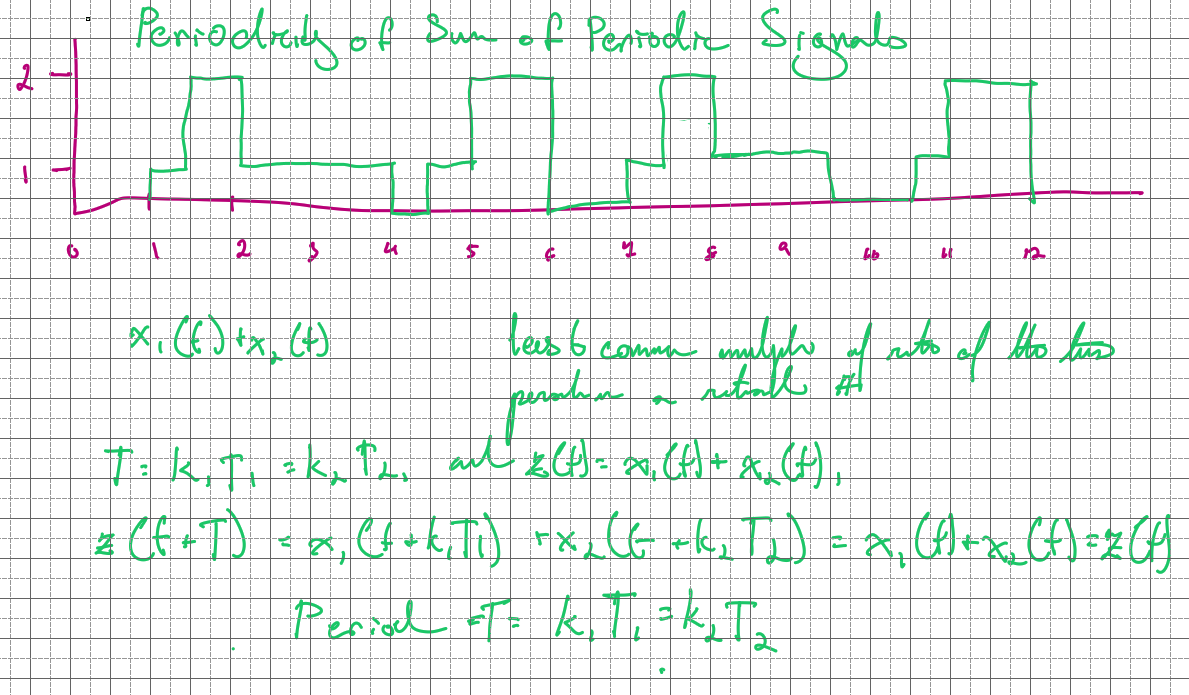 Periodicity of Sum of Periodic Signals
2
1
0 1 2 3 4 5 6 7 8 9 10 11 12
x₁(t)+x₂(t)
least common multiple of ratio of the two
#
T = k₁T₁ = k₂T₂, and z(t) = x₁(t) + x₂(t),
z(t+T) = x₁(t+k₁T₁) + x₂(t+k₂T₂) = x₁(t)+x₂(t)=z(t)
Period =T= k₁T₁ = k₂T₂